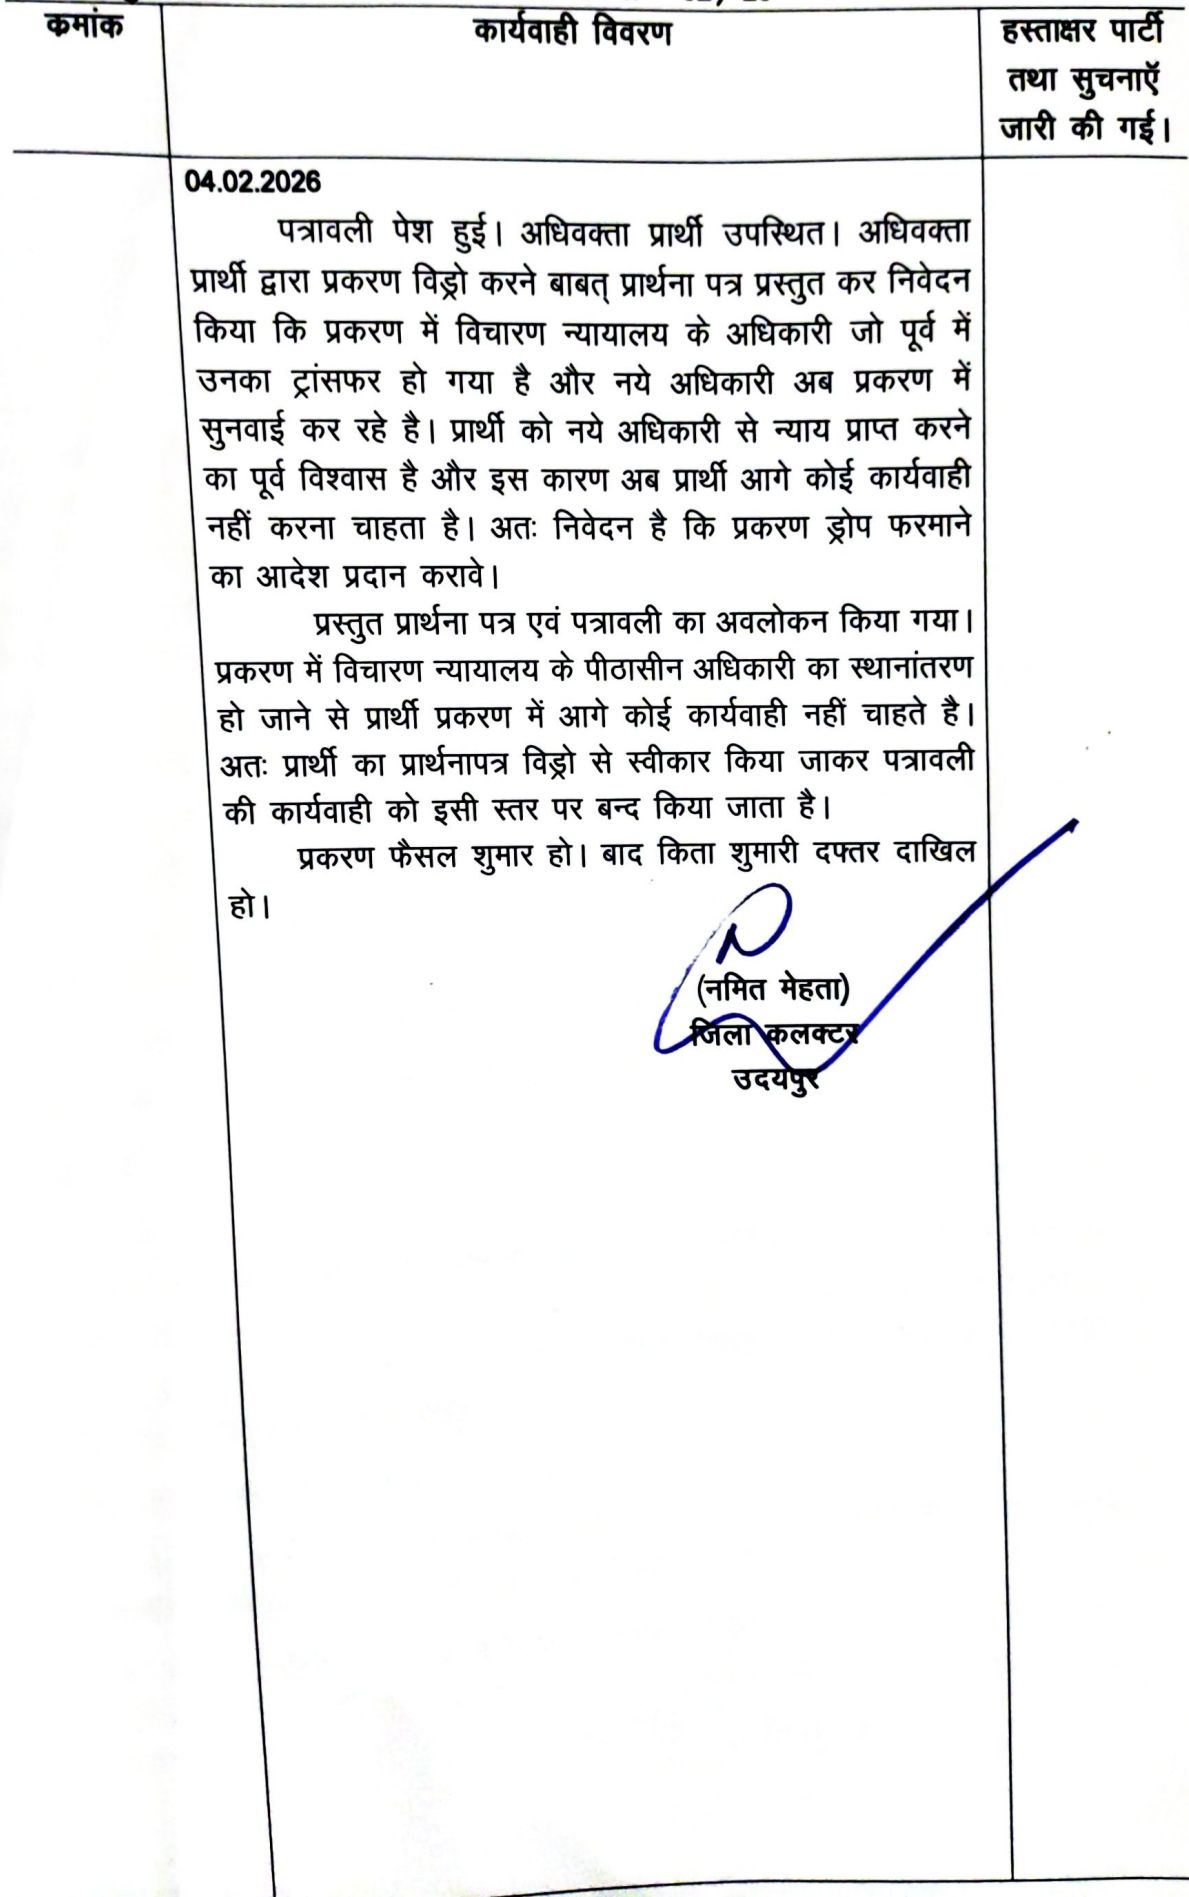 कमांक
कार्यवाही विवरण
हस्ताक्षर पार्टी
तथा सुचनाऍ
जारी की गई।
04.02.2026
पत्रावली पेश हुई। अधिवक्ता प्रार्थी उपस्थित। अधिवक्ता
प्रार्थी द्वारा प्रकरण विड्रो करने बाबत् प्रार्थना पत्र प्रस्तुत कर निवेदन
किया कि प्रकरण में विचारण न्यायालय के अधिकारी जो पूर्व में
उनका ट्रांसफर हो गया है और नये अधिकारी अब प्रकरण में
सुनवाई कर रहे है। प्रार्थी को नये अधिकारी से न्याय प्राप्त करने
का पूर्व विश्वास है और इस कारण अब प्रार्थी आगे कोई कार्यवाही
नहीं करना चाहता है। अतः निवेदन है कि प्रकरण ड्रोप फरमाने
का आदेश प्रदान करावे।
प्रस्तुत प्रार्थना पत्र एवं पत्रावली का अवलोकन किया गया।
प्रकरण में विचारण न्यायालय के पीठासीन अधिकारी का स्थानांतरण
हो जाने से प्रार्थी प्रकरण में आगे कोई कार्यवाही नहीं चाहते है।
अतः प्रार्थी का प्रार्थनापत्र विड्रो से स्वीकार किया जाकर पत्रावली
की कार्यवाही को इसी स्तर पर बन्द किया जाता है।
प्रकरण फैसल शुमार हो। बाद किता शुमारी दफ्तर दाखिल
हो।
(नमित मेहता)
जिला कलक्टर
उदयपुर